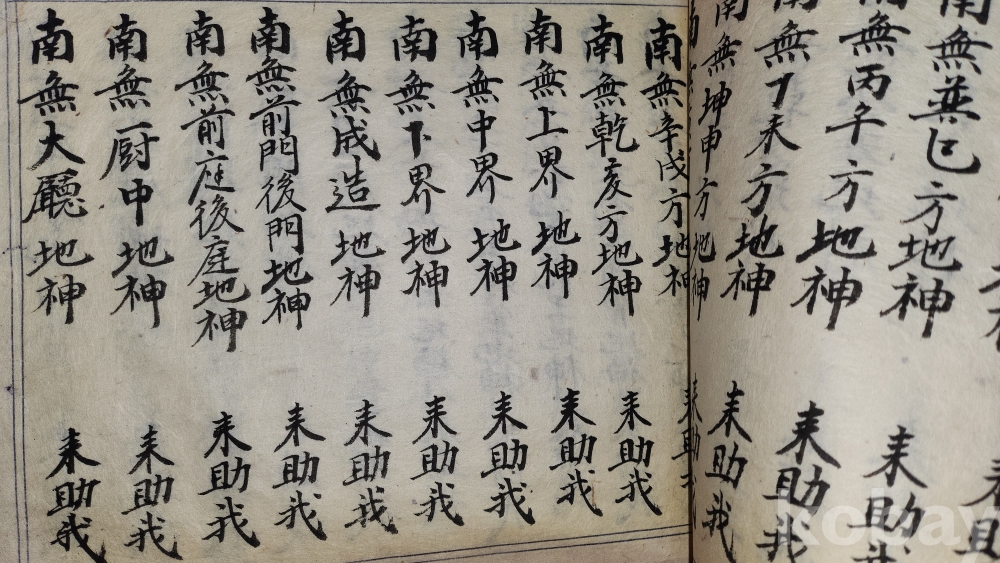 南無巽巳方地神 来助
南無丙午方地神 来助我
南無丁未方地神 来助我
南無坤申方地神 来助我
南無辛戌方地神 来助我
南無乾亥方地神 来助我
南無上界地神 来助我
南無中界地神 来助我
南無下界地神 来助我
南無成造地神 来助我
南無前門後門地神 来助我
南無前庭後庭地神 来助我
南無厨中地神 来助我
南無大廳地神 来助我
kobay